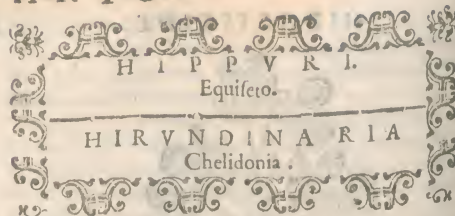 HIPPVRI.
Equiſeto.
HIRVNDINARIA
Chelidonia.